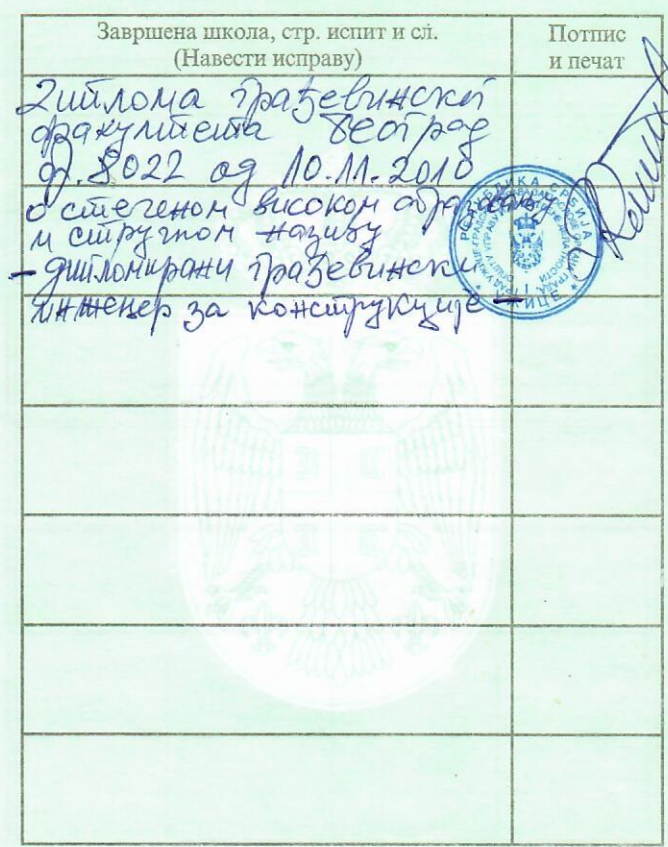 Завршена школа, стр. испит и сл.
(Навести исправу)
Потпис
и печат
Диплома Грађевинског
факултета Београд
бр. 8022 од 10.11.2010
о стеченом високом образовању
и стручном називу
– дипломирани грађевински
инжењер за конструкције –
РЕПУБЛИКА СРБИЈА
УЖИЦЕ